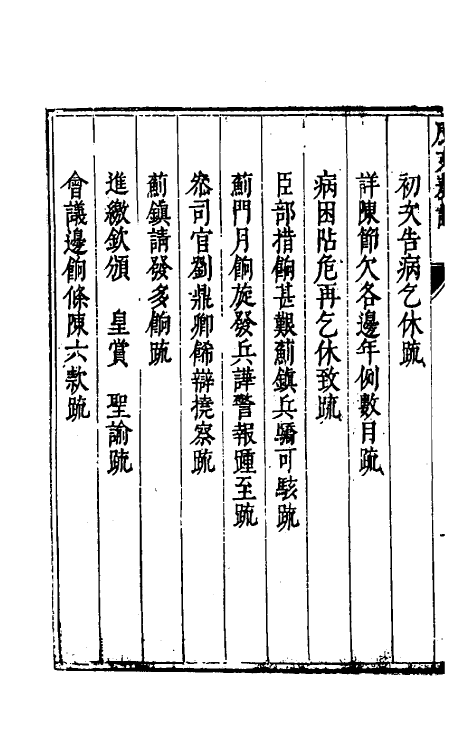 初次告病乞休疏
詳陳節欠各邊年例數月疏
病困阽危再乞休致疏
臣部措餉甚艱薊鎮兵驕可駭疏
薊門月餉旋發兵譁警報踵至疏
叅司官劉鼎卿餙辯撓察疏
薊鎮請發多餉疏
進繳欽頒　皇賞　聖諭疏
會議邊餉條陳六款疏